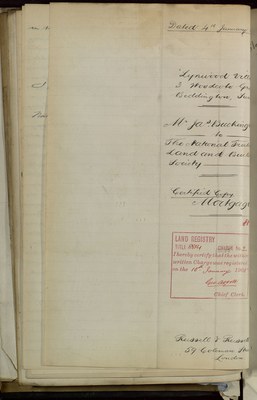 Dated 4th January
Lynwood Vill
3 Woodcote G
Beddington, Su
Mr Jas Bucking
to
The National
Land and Buil
Society
Certified Copy
Mortgag
LAND REGISTRY
TITLE
CHARGE No. 2
I hereby certify that the within
written Charge was registered
on the January
Chief Clerk
Russell &
59 Coleman
London